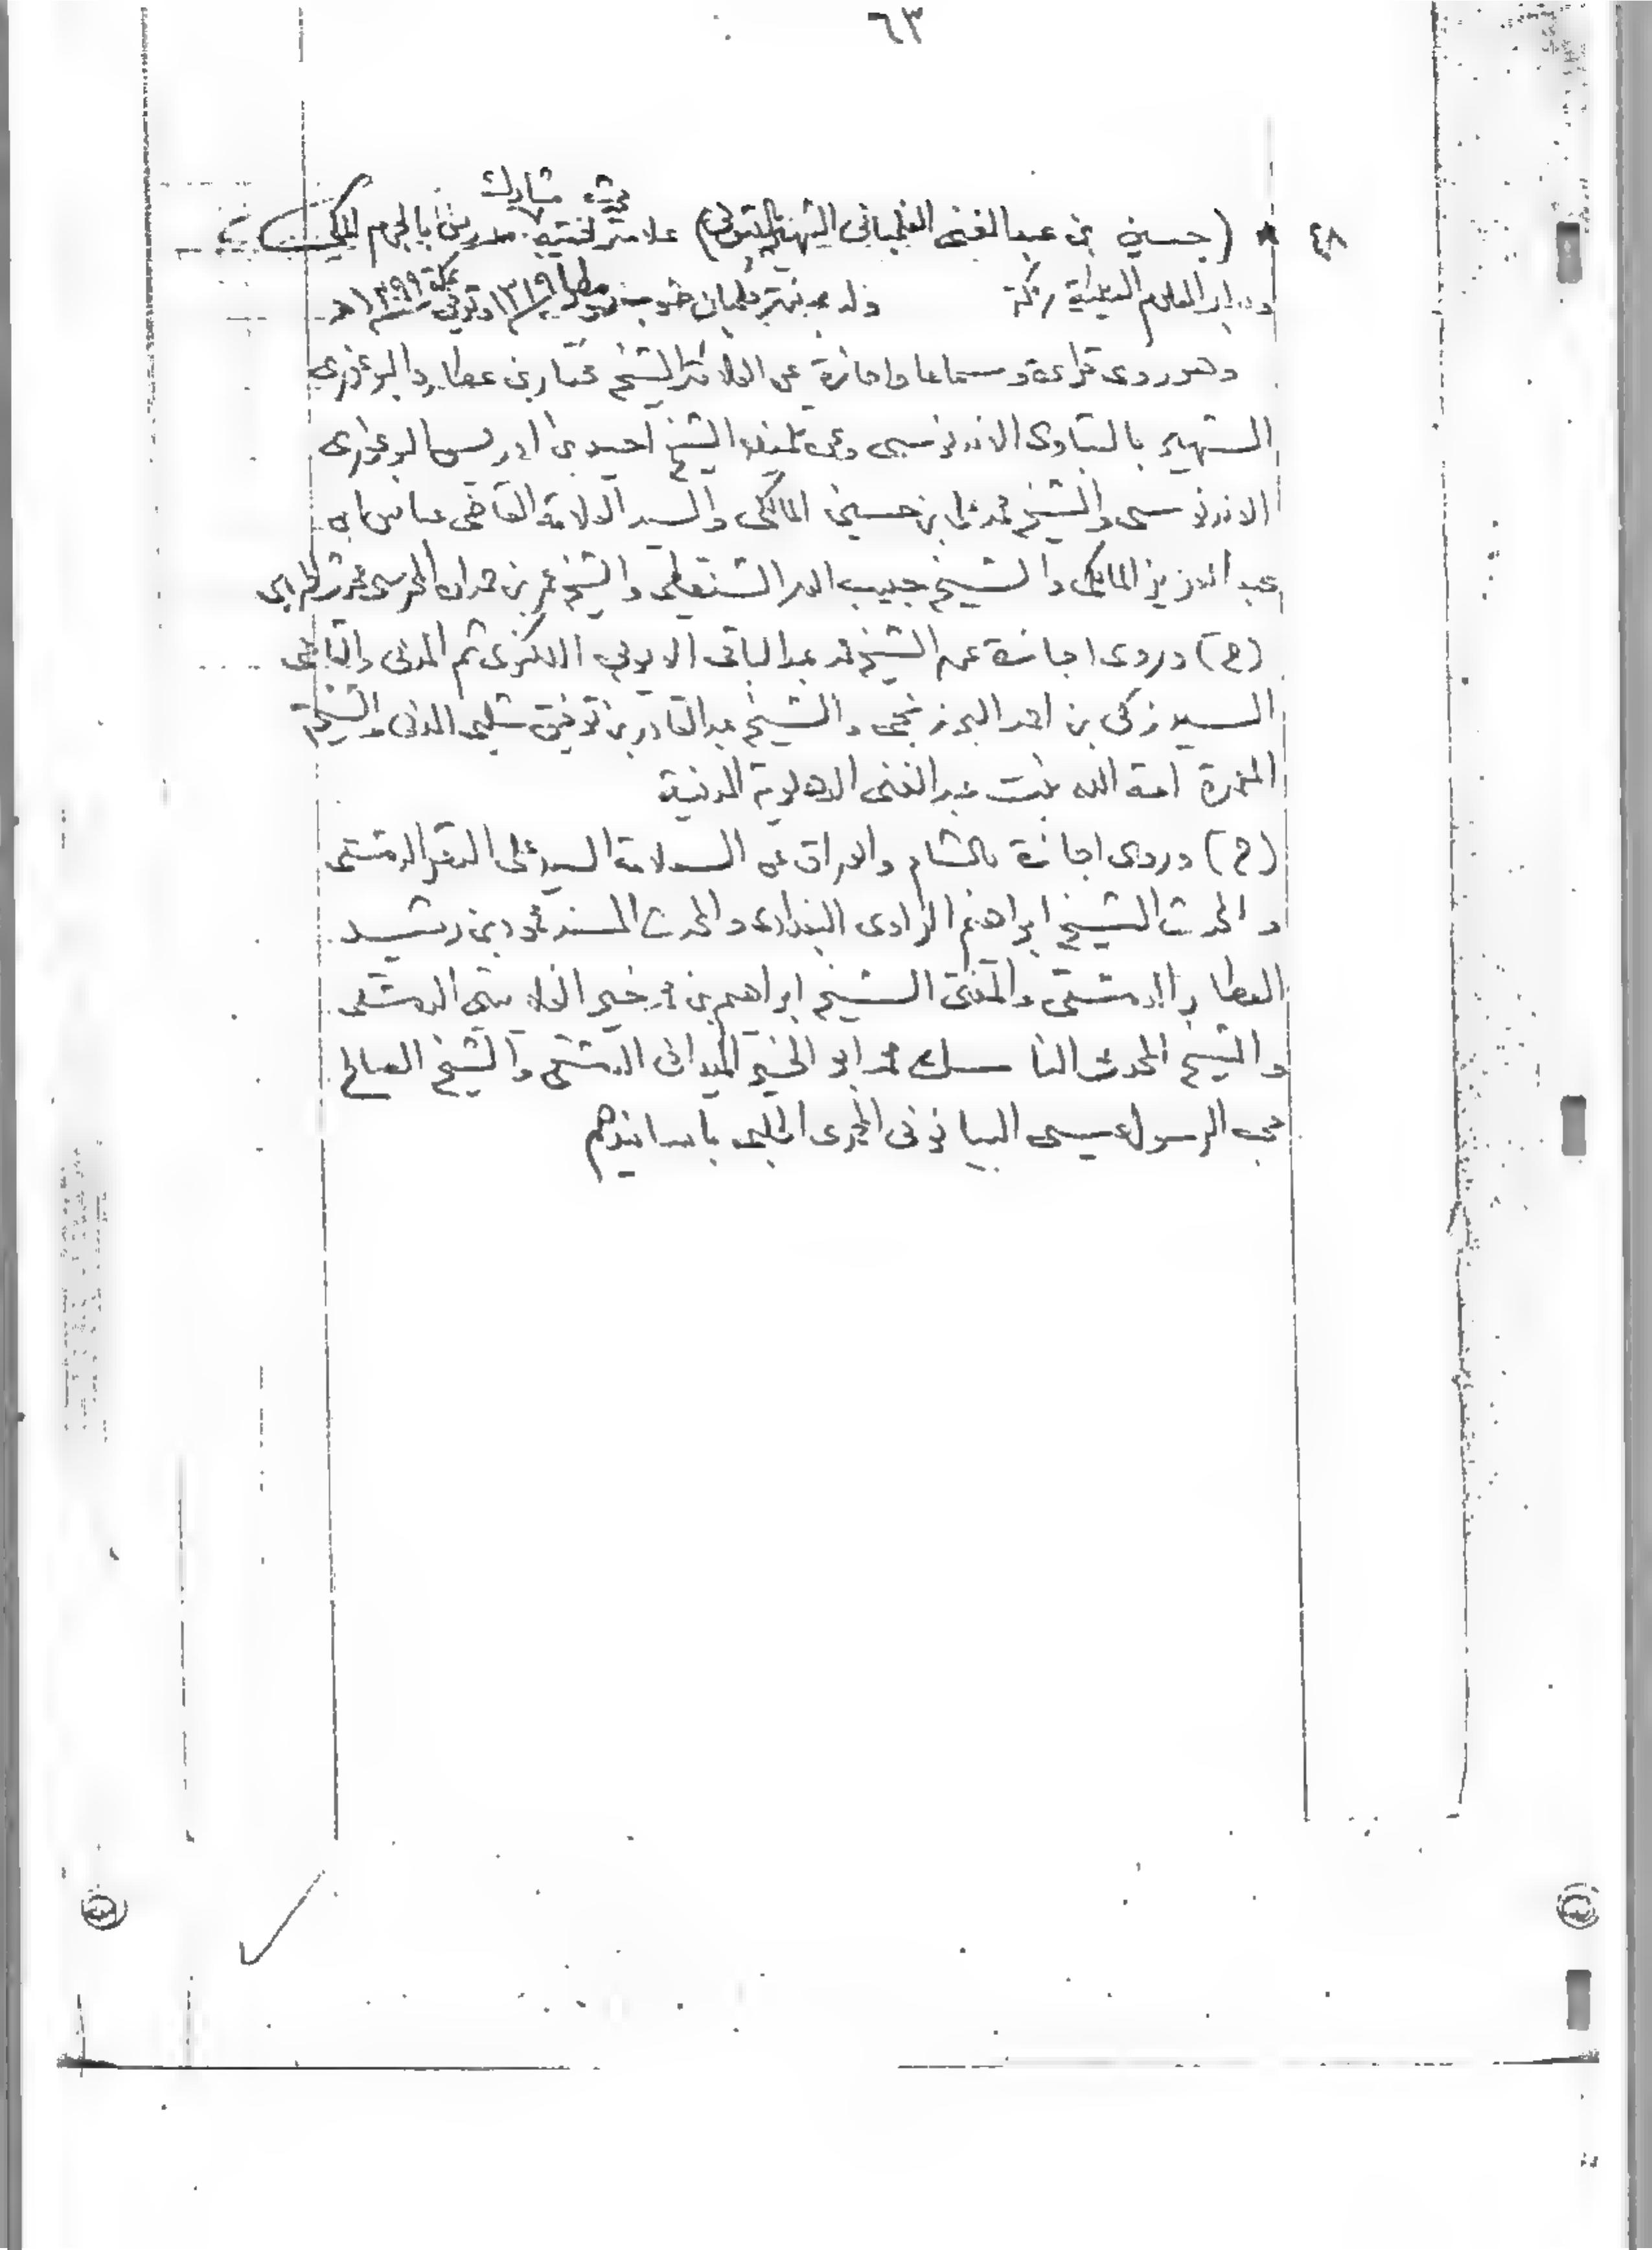 ٦٣
محدث مشارك
٤٨ * (حسين بن عبد الغني الفلمباني الشهير) علامة فقيه مدرس بالحرم المكي
ودار العلوم الدينية بمكة ولد ببلدة فلمبان ١٣١٩ وتوفي بمكة ١٣٩٩هـ
وهو روى قراءة وسماعا واجازة عن العلامة الشيخ مختار بن عطارد البوغوري
الشهير بالبتاوى الاندونوسى وعن تلميذه الشيخ احمد بن ادريس البوغورى
الاندونوسى والشيخ محمد على بن حسين المالكى والسيد العلامة القاضى عباس بن
عبد العزيز المالكى والشيخ حبيب الله الشنقيطى والشيخ عمر بن حمدان المحرسى محدث الحرمين
(ح) وروى اجازة عن الشيخ محمد عبد الباقى الايوبى اللكنوى ثم المدنى والقاضى
السيد زكى بن احمد البرزنجى والشيخ عبد القادر بن توفيق شلبى المدنى والشيخة
المعمرة امة الله بنت عبد الغنى الدهلوية المدنية
(ح) وروى اجازة بالشام والعراق عن العلامة السيد على الدقر الدمشقى
والمحدث الشيخ ابراهيم الراوى البغدادى والمحدث المسند محمود بن رشيد
العطار الدمشقى والمفتى الشيخ ابراهيم بن محمد خير الغلايينى الدمشقى
والشيخ المحدث الناسك محمد ابو الخير الميدانى الدمشقى والشيخ الصالح
محب الرسول عيسى البيانونى الحلبى باسانيدهم